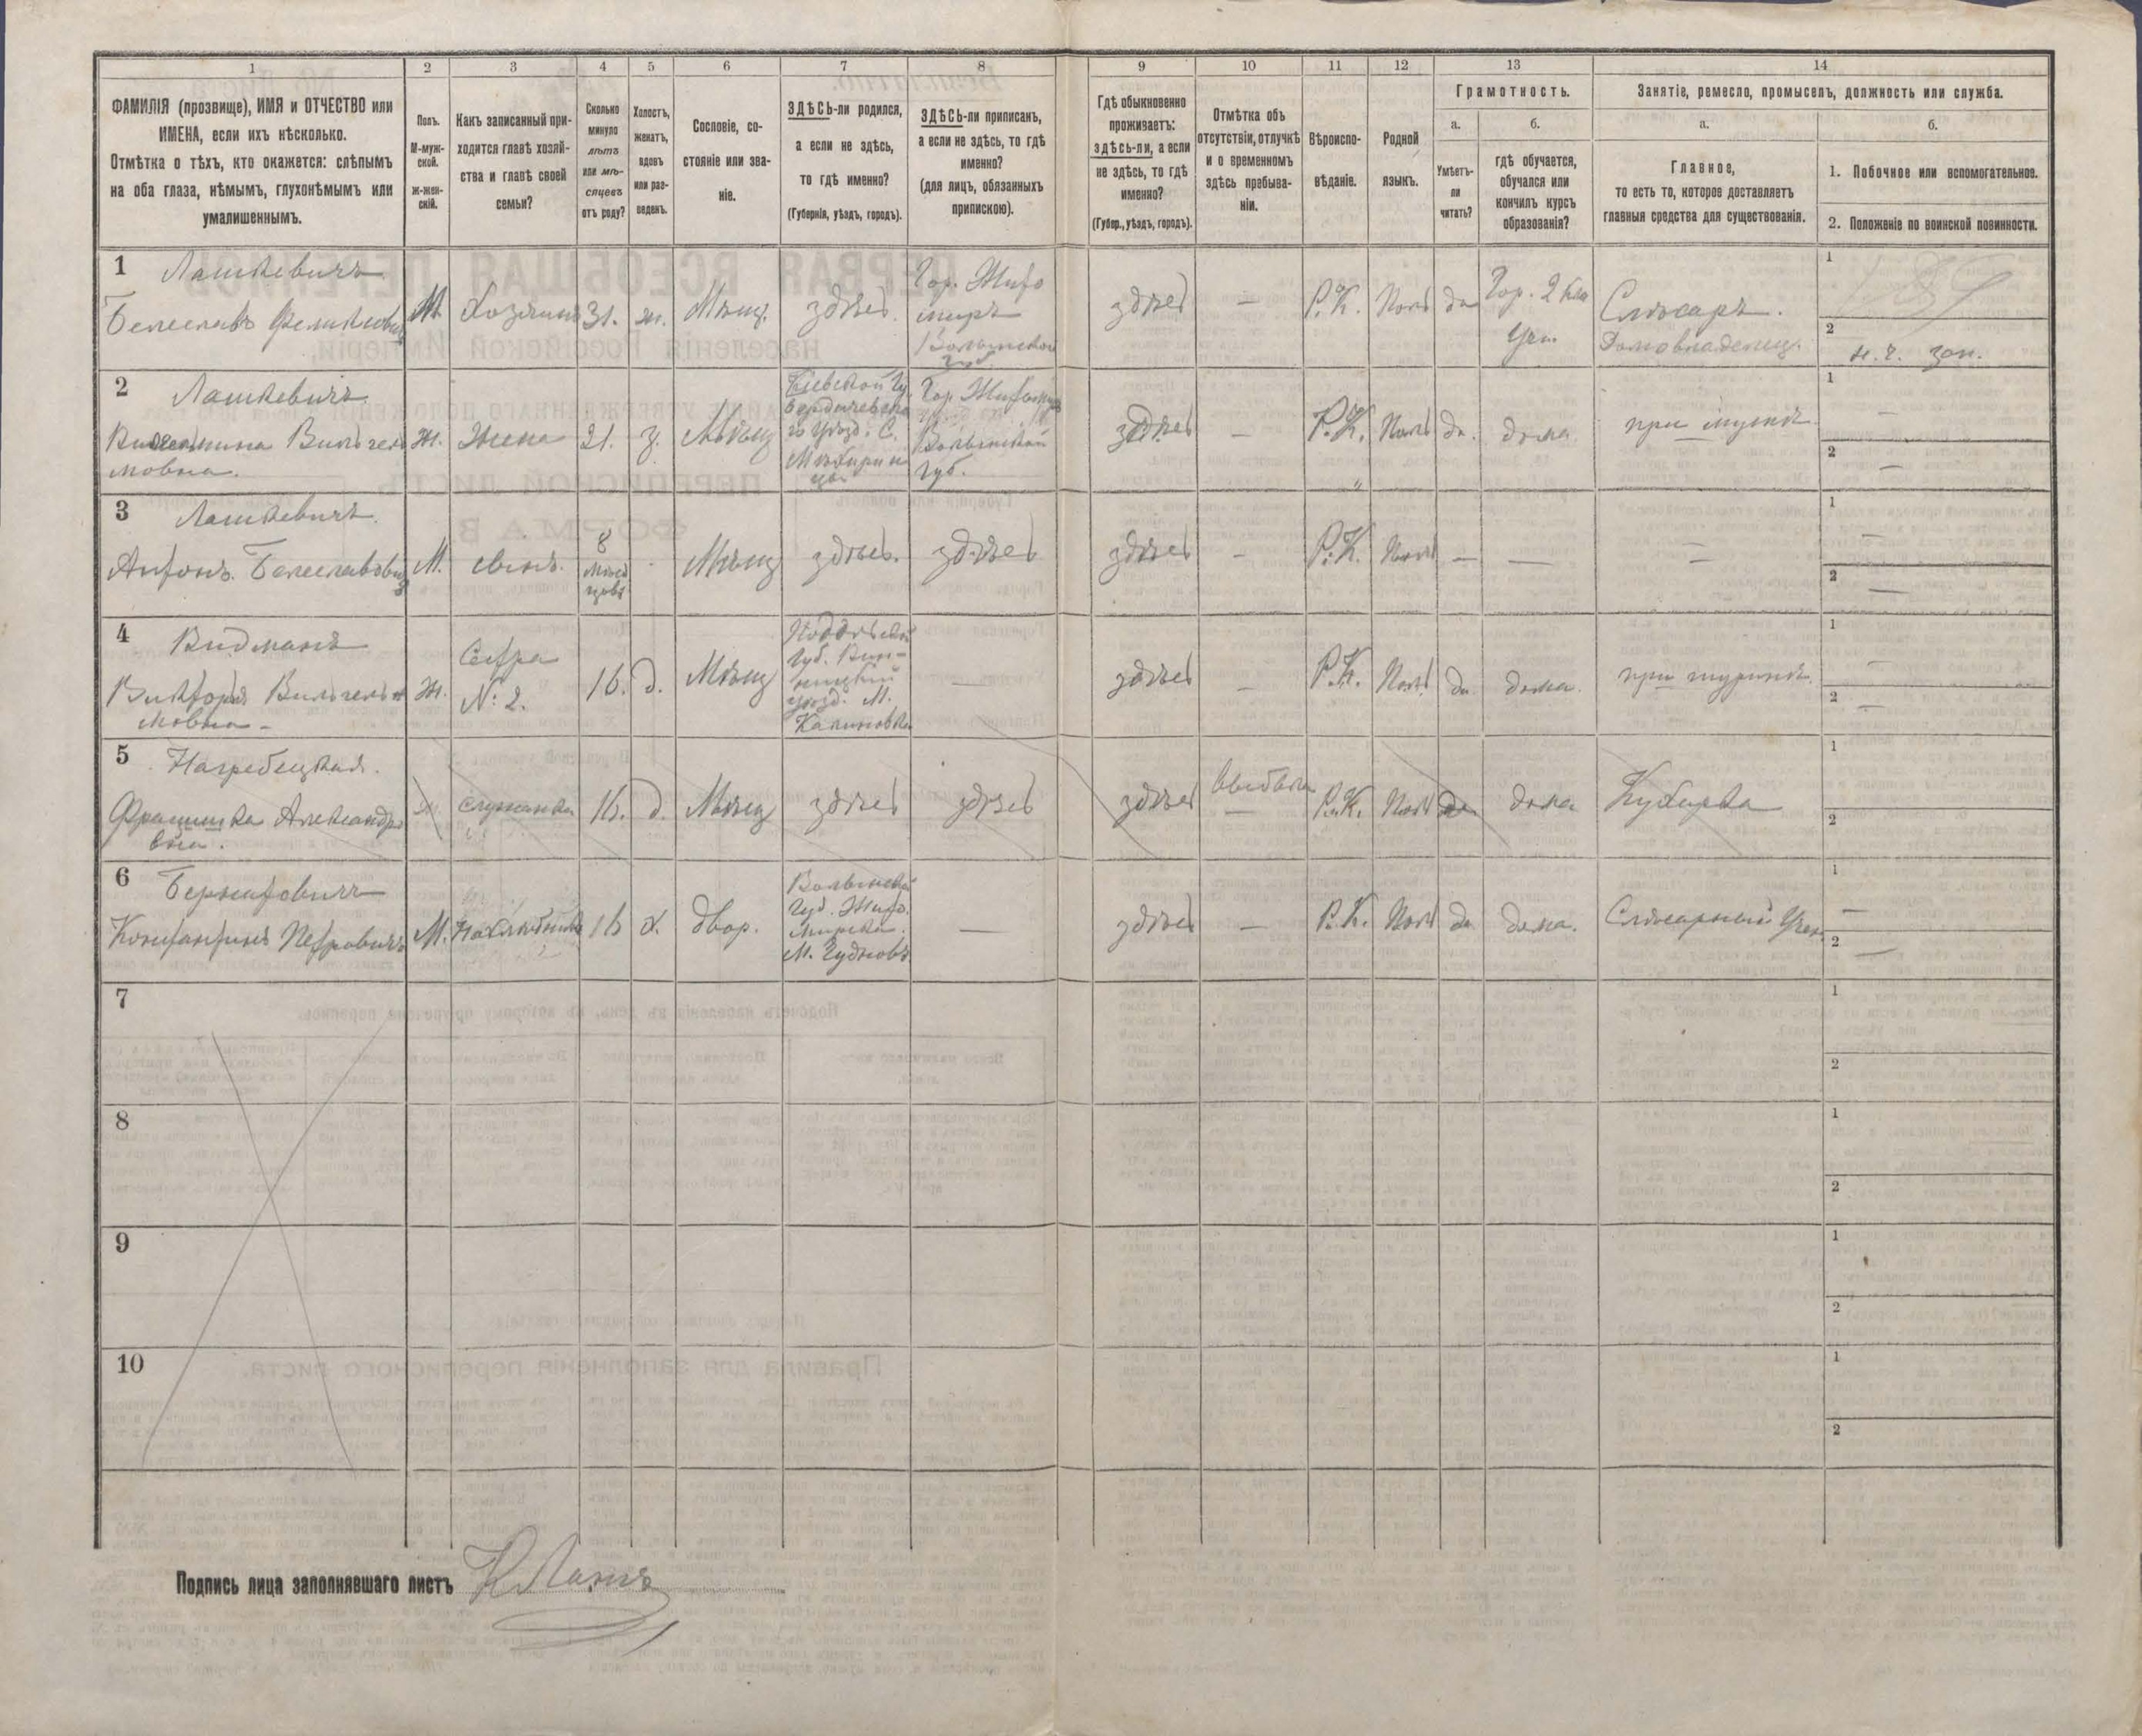 1 2 3 4 5 6 7 8 9 10 11 12 13 14
ФАМИЛІЯ (прозвище), ИМЯ и ОТЧЕСТВО или
ИМЕНА, если ихъ нѣсколько.
Отмѣтка о тѣхъ, кто окажется: слѣпымъ
на оба глаза, нѣмымъ, глухонѣмымъ или
умалишеннымъ.
Полъ.
М-муж-
ской.
ж-жен-
скій.
Какъ записанный при-
ходится главѣ хозяй-
ства и главѣ своей
семьи?
Сколько
минуло
лѣтъ
или мѣ-
сяцевъ
отъ роду?
Холостъ,
женатъ,
вдовъ
или раз-
веденъ.
Сословіе, со-
стояніе или зва-
ніе.
ЗДѢСЬ-ли родился,
а если не здѣсь,
то гдѣ именно?
(Губернія, уѣздъ, городъ).
ЗДѢСЬ-ли приписанъ,
а если не здѣсь, то гдѣ
именно?
(для лицъ, обязанныхъ
припискою).
Гдѣ обыкновенно
проживаетъ:
здѣсь-ли, а если
не здѣсь, то гдѣ
именно?
(Губер., уѣздъ, городъ).
Отмѣтка объ
отсутствіи, отлучкѣ
и о временномъ
здѣсь пребыва-
ніи.
Вѣроиспо-
вѣданіе.
Родной
языкъ.
Грамотность.
а.
Умѣетъ-
ли
читать?
б.
гдѣ обучается,
обучался или
кончилъ курсъ
образованія?
Занятіе, ремесло, промыселъ, должность или служба.
а.
Главное,
то есть то, которое доставляетъ
главныя средства для существованія.
б.
1. Побочное или вспомогательное.
2. Положеніе по воинской повинности.
1
Лашкевичъ
Болеславъ Феликсович
М.
Хозяинъ
31.
ж.
Мѣщ.
здѣсь.
Гор. Жито
миръ
Волынской
Губ.
здѣсь
—
Р.К.
Поль
да
Гор. 2 кла
Уч.
Слѣсарь.
Домовладелец.
1
2
2
Лашкевичъ
Вильгель
мовна.
Ж.
Жена
21.
з.
Мѣщ
Кіевской Гу.
Бердичевска
го Уѣзд. С.
Гор. Житомир
Волынской
Губ.
здѣсь
—
Р.К.
Поль
да.
дома
при мужѣ
1
—
2
—
3
Лашкевичъ.
Антонъ. Болеславович
М.
сынъ.
8
мѣся
цевъ
Мѣщ
здѣсь.
здѣсь
здѣсь
—
Р.К.
Поль
—
—
—
1
—
2
—
4
Видманъ
Викторія Вильгель
мовна
Ж.
Сестра
№ 2.
16.
д.
Мѣщ
Подольской
Губ. Вин-
ницкій
уѣзд. М.
Калиновка
—
здѣсь
—
Р.К.
Поль
да
дома.
1
—
2
—
5
Нагребецкая.
Францишка Александро
вна.
Ж
служанка
16.
д.
Мѣщ
здѣсь
здѣсь
здѣсь
выбыла
—
Р.К.
Поль
да
дома
Кухарка
1
2
6
Бернатовичъ
Константинъ Петровичъ
М.
Нахлѣбникъ
16
х.
двор.
Волынской
Губ. Жито
мирска.
М. Чудновъ
—
здѣсь
—
Р.К.
Поль
да
дома.
Слѣсарный Учен
1
—
2
—
7
1
2
8
1
2
9
1
2
10
1
2
Подпись лица заполнявшаго листъ